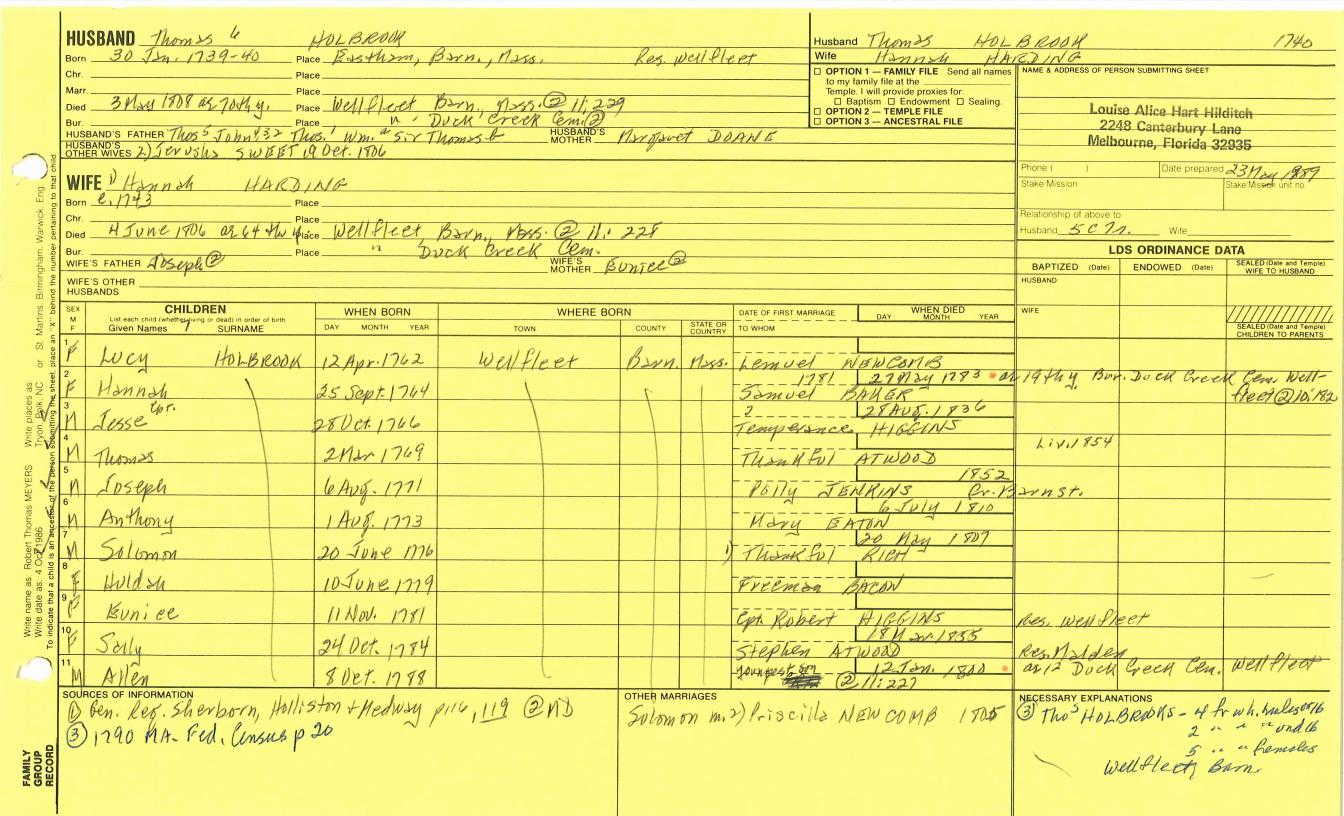 HUSBAND Thomas 6 HOLBROOK
Born 30 Jan. 1739-40 Place Eastham, Barn., Mass. Res. Wellfleet
Chr. Place
Marr. Place
Died 3 May 1808 ae 70th y. Place Wellfleet Barn., Mass. ② 11:229
Bur. Place " Duck Creek Cem. ②
HUSBAND'S FATHER Thos.5 John4,3,2 Thos.1 Wm.a Sir Thomas b HUSBAND'S MOTHER Margaret DOANE
HUSBAND'S OTHER WIVES 2) Jerusha SWEET 19 Oct. 1806
WIFE 1) Hannah HARDING
Born c. 1743 Place
Chr. Place
Died 4 June 1806 ae 64th y. Place Wellfleet Barn., Mass. ② 11: 228
Bur. Place " Duck Creek Cem.
WIFE'S FATHER Joseph ② WIFE'S MOTHER Eunice ②
WIFE'S OTHER HUSBANDS
Husband Thomas HOLBROOK 1740
Wife Hannah HARDING
☐ OPTION 1 — FAMILY FILE Send all names
to my family file at the
Temple. I will provide proxies for:
☐ Baptism ☐ Endowment ☐ Sealing.
☐ OPTION 2 — TEMPLE FILE
☐ OPTION 3 — ANCESTRAL FILE
NAME & ADDRESS OF PERSON SUBMITTING SHEET
Louise Alice Hart Hilditch
2248 Canterbury Lane
Melbourne, Florida 32935
Phone ( ) Date prepared 23 May 1989
Stake Mission Stake Mission unit no.
Relationship of above to
Husband 5C7r. Wife
LDS ORDINANCE DATA
BAPTIZED (Date) ENDOWED (Date) SEALED (Date and Temple) WIFE TO HUSBAND
HUSBAND
WIFE
SEALED (Date and Temple) CHILDREN TO PARENTS
SEX M F CHILDREN WHEN BORN WHERE BORN DATE OF FIRST MARRIAGE WHEN DIED
List each child (whether living or dead) in order of birth
Given Names SURNAME DAY MONTH YEAR TOWN COUNTY STATE OR COUNTRY TO WHOM DAY MONTH YEAR
1 F Lucy HOLBROOK 12 Apr. 1762 Wellfleet Barn. Mass. Lemuel NEWCOMB
1781 27 May 1783 ae 19th y Bur. Duck Creek Cem. Wellfleet ② 10:182
2 F Hannah 25 Sept. 1764 Samuel BAKER
2 28 Aug. 1836
3 M Jesse Cpt. 28 Oct. 1766 Temperance HIGGINS
Liv. 1854
4 M Thomas 2 Mar 1769 Thankful ATWOOD
1852
5 M Joseph 6 Aug. 1771 Polly JENKINS Cr. Barnst.
6 July 1810
6 M Anthony 1 Aug. 1773 Mary EATON
20 May 1807
7 M Solomon 20 June 1776 1) Thankful RICH
8 F Huldah 10 June 1779 Freeman BACON
9 F Eunice 11 Nov. 1781 Cpt. Robert HIGGINS Res. Wellfleet
18 Mar 1855
10 F Sally 24 Oct. 1784 Stephen ATWOOD Res. Malden
11 M Allen 8 Oct. 1788 youngest son 12 Jan. 1800 ae 12 Duck Creek Cem. Wellfleet
② 11:227
SOURCES OF INFORMATION
① Gen. Reg. Sherborn, Holliston + Medway p 116, 119 ② MD
③ 1790 MA. Fed. Census p 20
OTHER MARRIAGES
Solomon m. 2) Priscilla NEWCOMB 1805
NECESSARY EXPLANATIONS
③ Thos HOLBROOKS - 4 fr wh. males of 16
2 " " " und 16
5 " " females
Wellfleet, Barn.
Write name as: Robert Thomas MEYERS Write places as: Tryon, Polk, NC or St. Martins, Birmingham, Warwick, Eng.
Write date as: 4 Oct 1986
To indicate that a child is an ancestor of the person submitting the sheet, place an "X" behind the number pertaining to that child
FAMILY GROUP RECORD